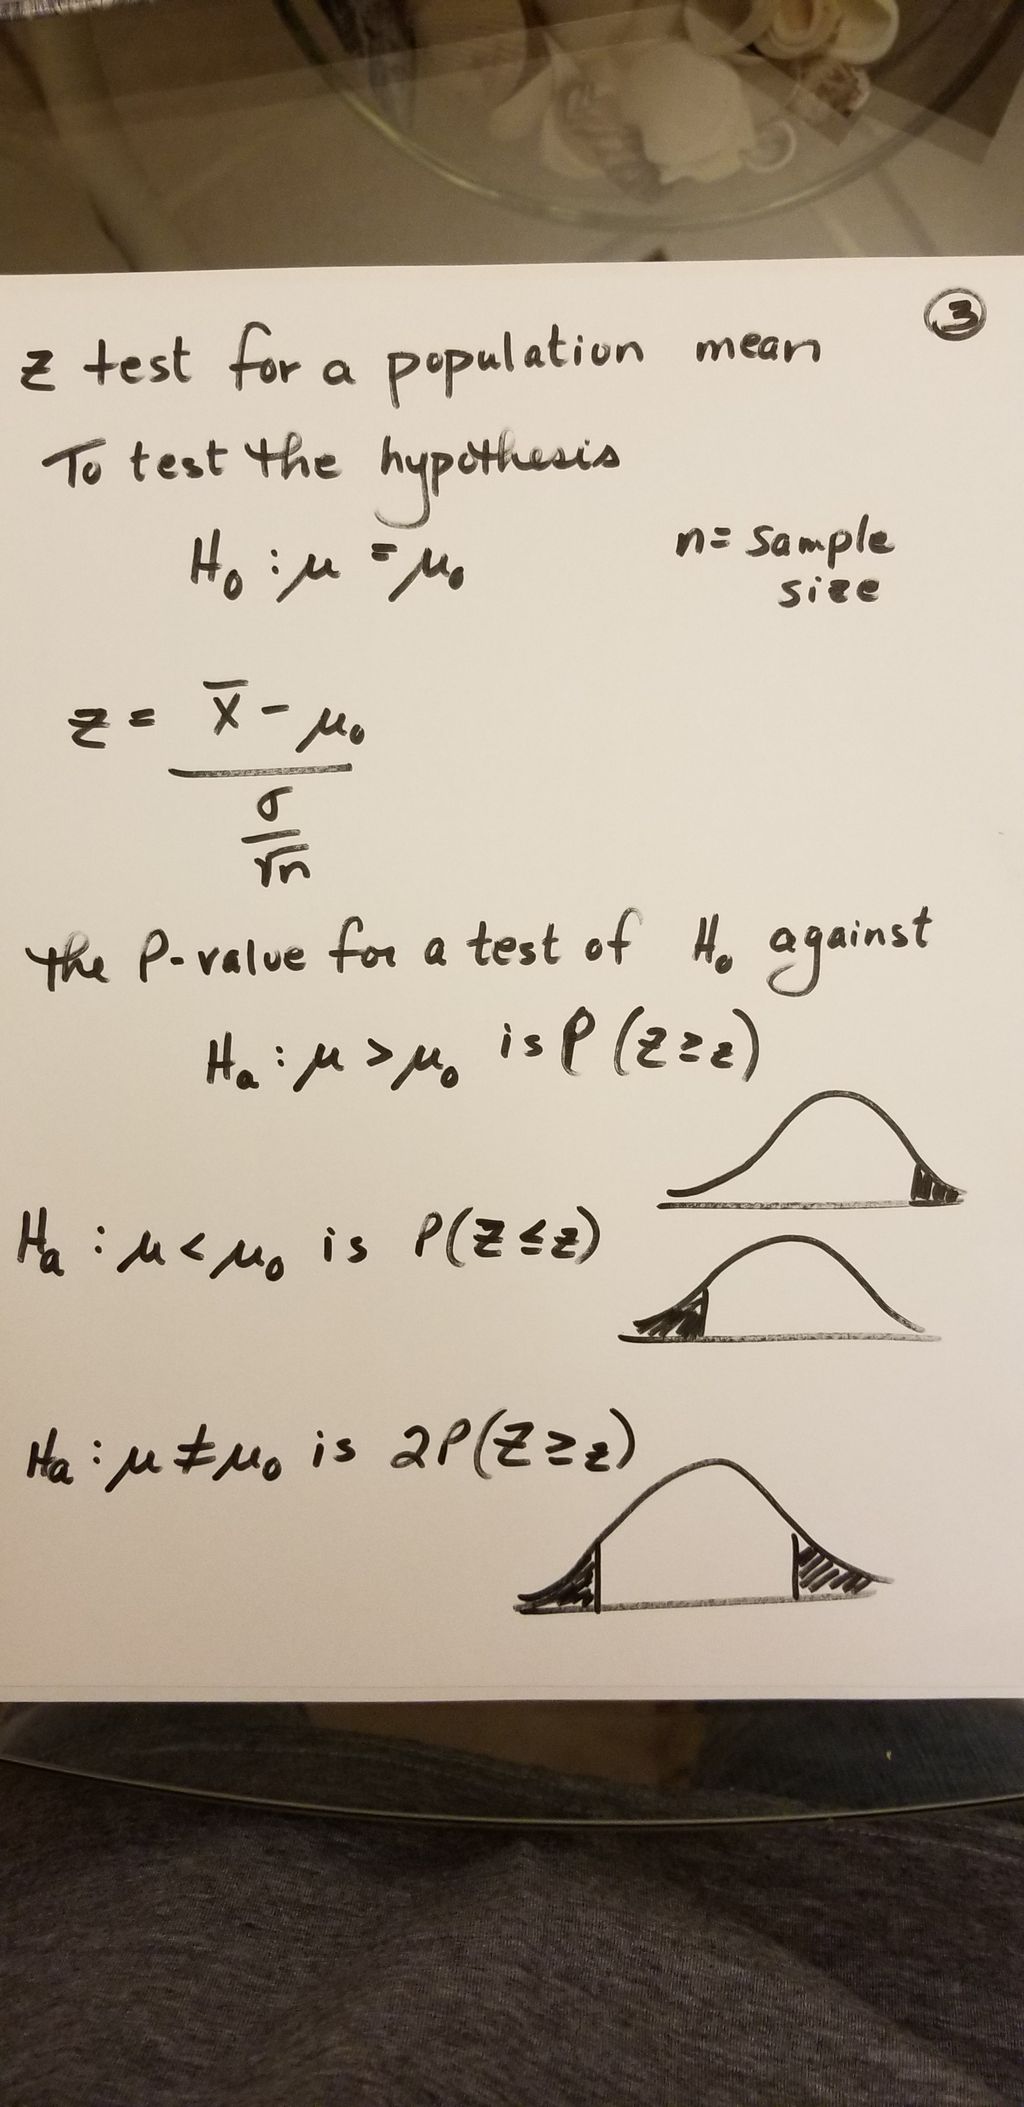 ③
Z test for a population mean
To test the hypothesis
H₀ : μ = μ₀
n = sample
size
z = x̄ - μ₀
σ
√n
the P-value for a test of H₀ against
Hₐ : μ > μ₀ is P(Z ≥ z)
Hₐ : μ < μ₀ is P(Z ≤ z)
Hₐ : μ ≠ μ₀ is 2P(Z ≥ z)